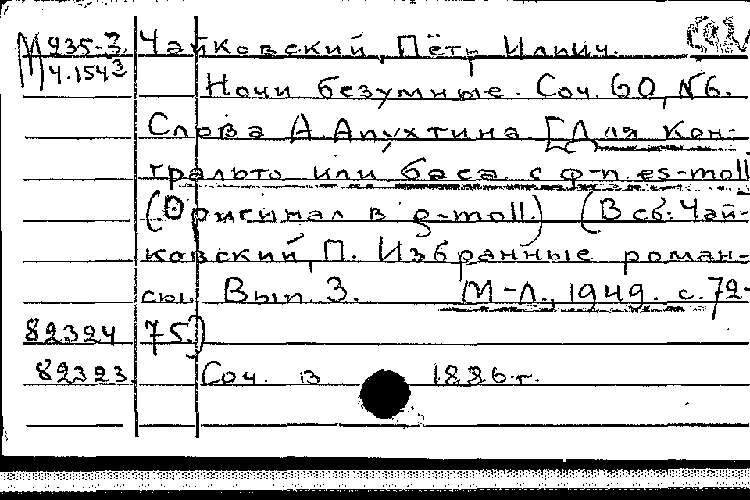 М 235-3 Чайковский, Пётр Ильич.
Ч.154³
Ночи безумные. Соч. 60, №6.
Слова А. Апухтина. [Для кон-
тральто или баса с ф-п. es-moll
(Оригинал в g-moll.) (В сб: Чай-
ковский, П. Избранные роман-
сы. Вып. 3. М-Л., 1949. с. 72-
82324 75.)
82323 Соч. в 1886 г.